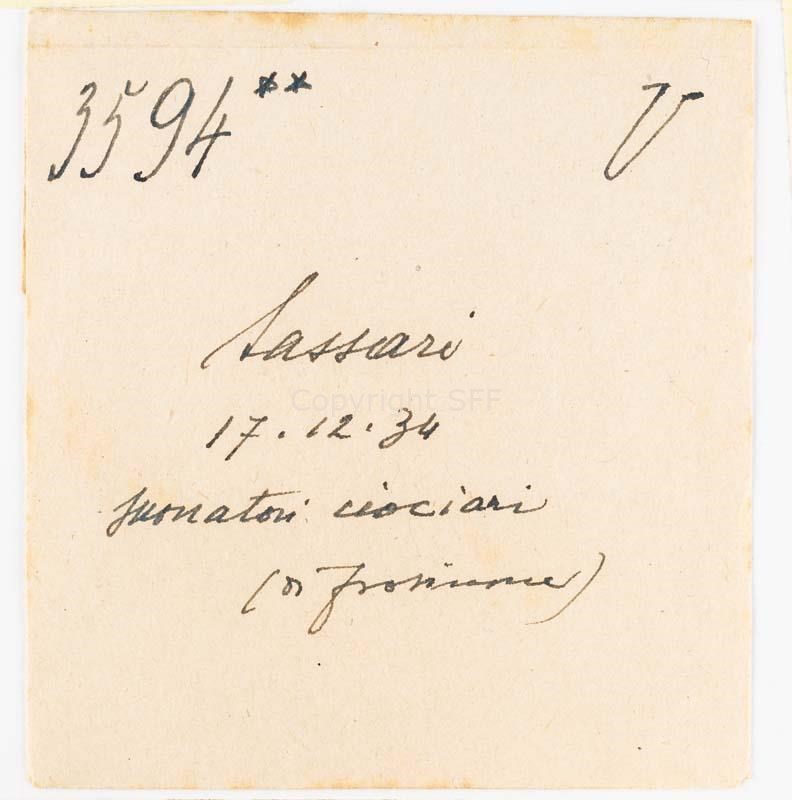 3594** V
Sassari
Copyright SFF
17.12.34
suonatori ciociari
(di Frosinone)